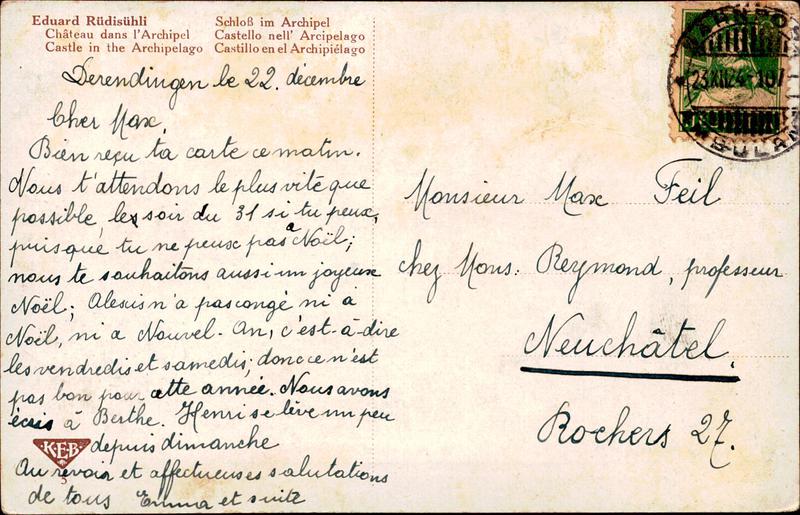 Eduard Rüdisühli
Château dans l'Archipel
Castle in the Archipelago
Schloß im Archipel
Castello nell' Arcipelago
Castillo en el Archipiélago
Derendingen le 22. décembre
Cher Max,
Bien reçu ta carte ce matin.
Nous t'attendons le plus vite que
possible, le soir du 31 si tu peux,
puisque tu ne peux pas à Noël;
nous te souhaitons aussi un joyeux
Noël; Alexis n'a pas congé ni à
Noël, ni a Nouvel-An, c'est-à-dire
les vendredis et samedis; donc ce n'est
pas bon pour cette année. Nous avons
écris à Berthe. Henri se lève un peu
depuis dimanche
Au revoir et affectueuses salutations
de tous Emma et suite
KEB
Monsieur Max Feil
chez Mons: Reymond, professeur
Neuchâtel.
Rochers 27.